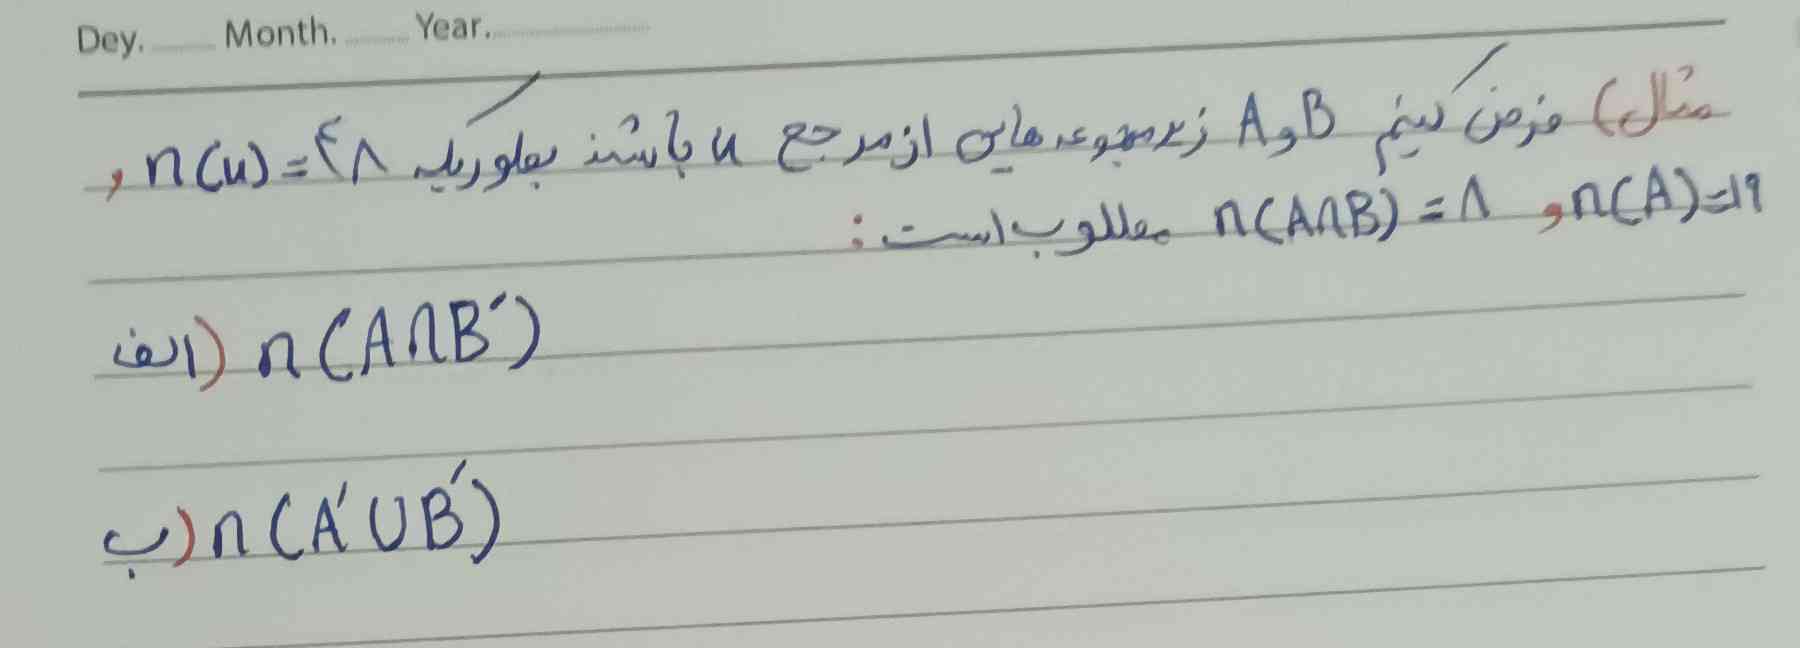 Dey. Month. Year.
مثال) فرض کنیم A و B زیرمجموعه‌هایی از مرجع u باشند بطوریکه n(u)=۴۸ و
n(A)=۱۹ و n(A∩B)=۸ مطلوب است:
الف) n(A∩B′)
ب) n(A′∪B′)